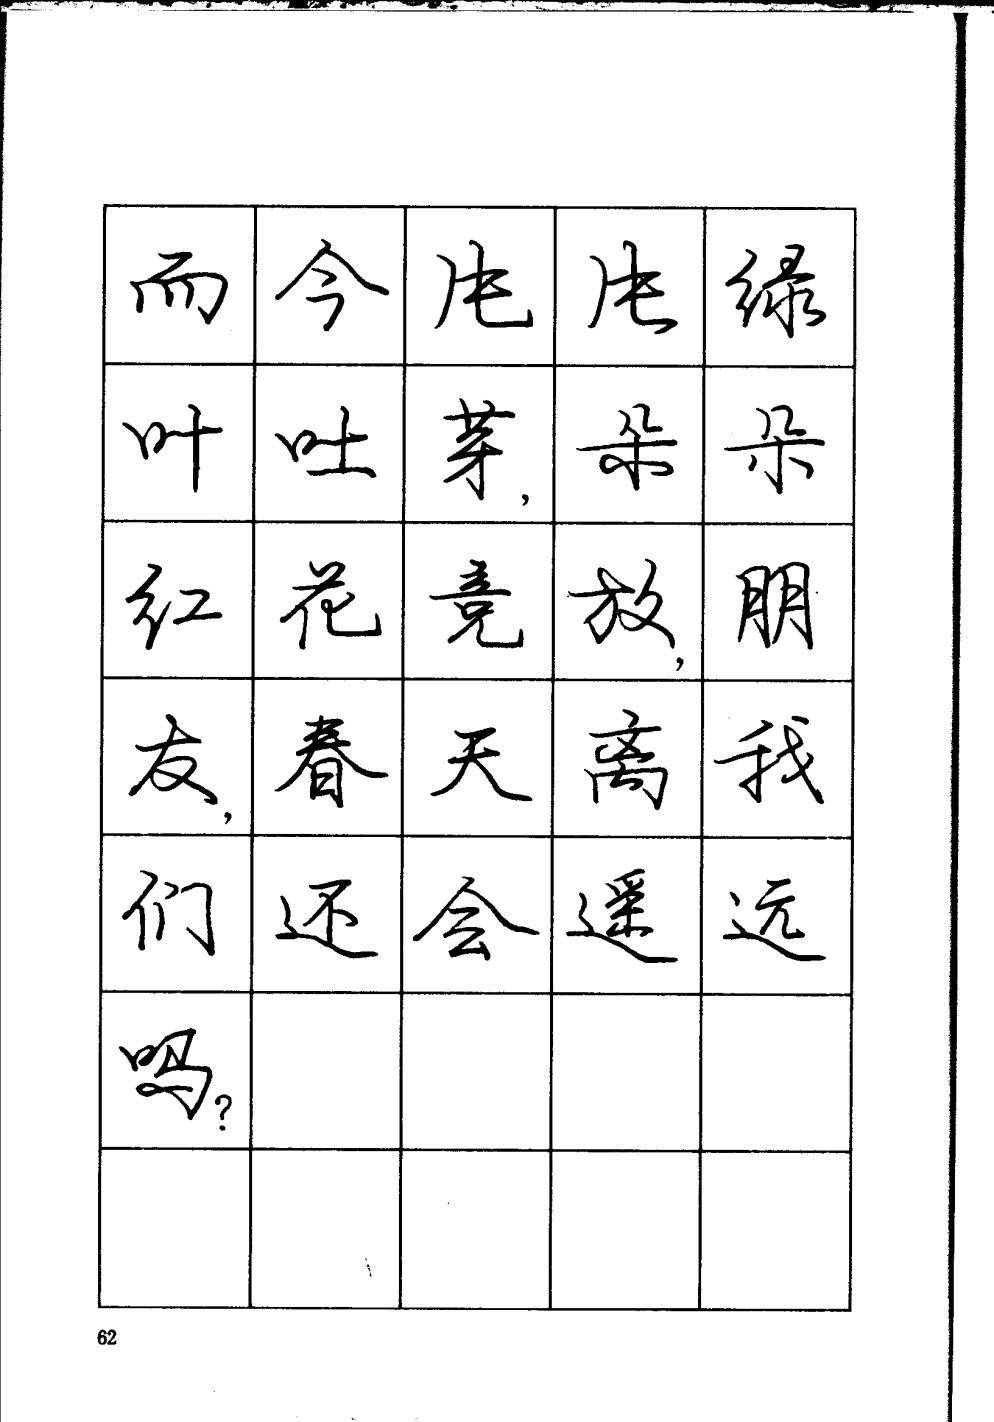 而今绿
叶吐芽,朵朵
红花竞放,朋
友,春天离我
们还会遥远
吗?
62